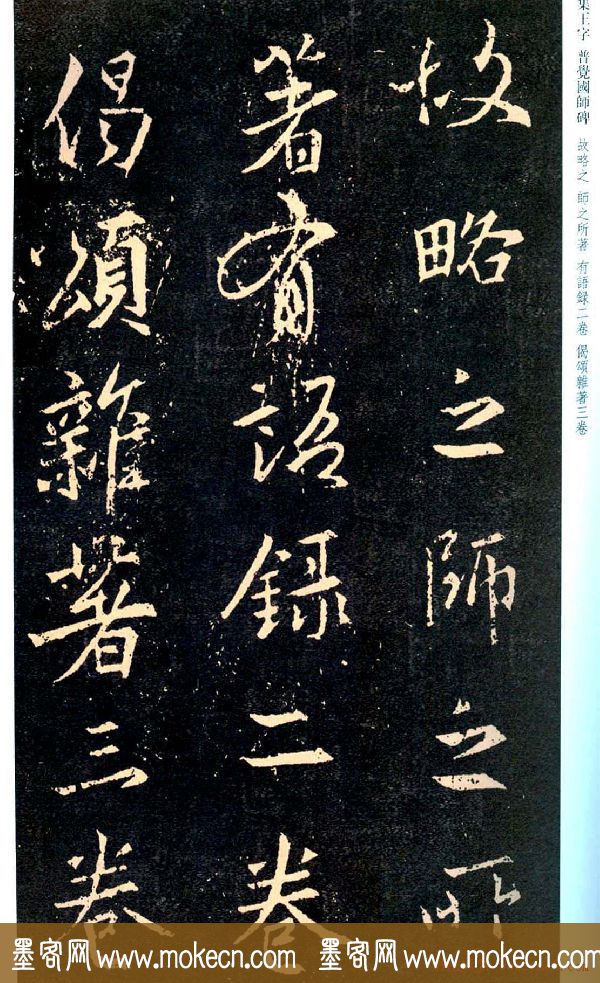 集王字 普覺國師碑 故略之 師之所著 有語録二卷 偈頌雜著三卷
故略之師之所
著有語録二卷
偈頌雜著三卷
墨客网 www.mokecn.com 墨客网 www.mokecn.com